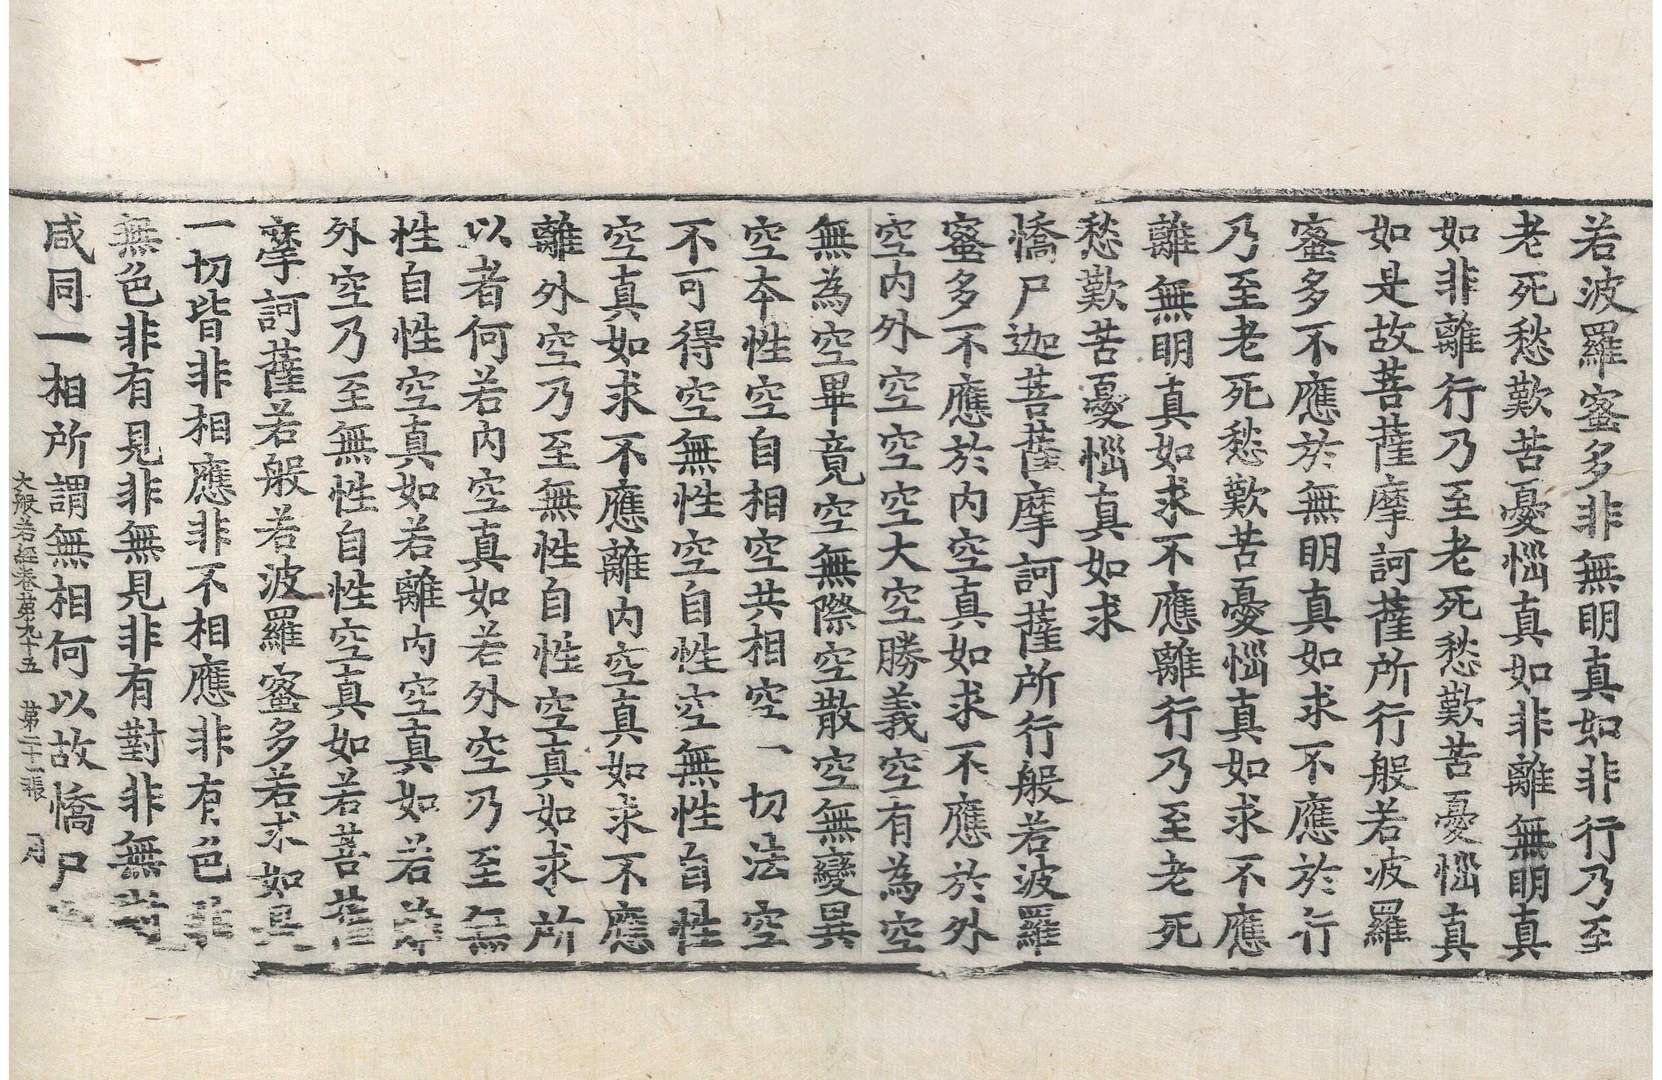 若波羅蜜多非無明真如非行乃至
老死愁歎苦憂惱真如非離無明真
如非離行乃至老死愁歎苦憂惱真
如是故菩薩摩訶薩所行般若波羅
蜜多不應於無明真如求不應於行
乃至老死愁歎苦憂惱真如求不應
離無明真如求不應離行乃至老死
愁歎苦憂惱真如求
憍尸迦菩薩摩訶薩所行般若波羅
蜜多不應於內空真如求不應於外
空內外空空空大空勝義空有為空
無為空畢竟空無際空散空無變異
空本性空自相空共相空一切法空
不可得空無性空自性空無性自性
空真如求不應離內空真如求不應
離外空乃至無性自性空真如求所
以者何若內空真如若外空乃至無
性自性空真如若離內空真如若離
外空乃至無性自性空真如若菩薩
摩訶薩若般若波羅蜜多若求如是
一切皆非相應非不相應非有色非
無色非有見非無見非有對非無對
咸同一相所謂無相何以故憍尸
大般若經卷第九十五 第二十一張 月